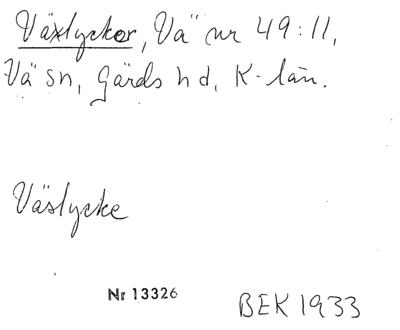 Växlyckor, Vä nr 49:11,
Vä sn, Gärds hd, K-län.
Väslycke
Nr 13326
BEK 1933